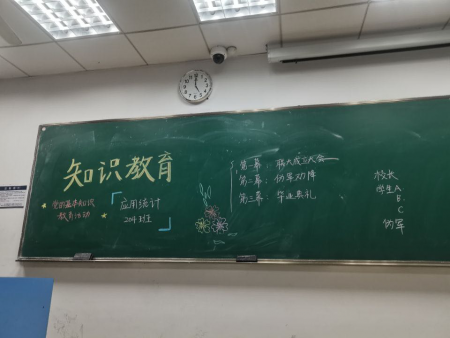 知识教育
党的基本知识
教育活动
应用统计
2014班
第一幕：
第二幕：伪军劝降
第三幕：毕业典礼
校长
学生A
B
C
伪军